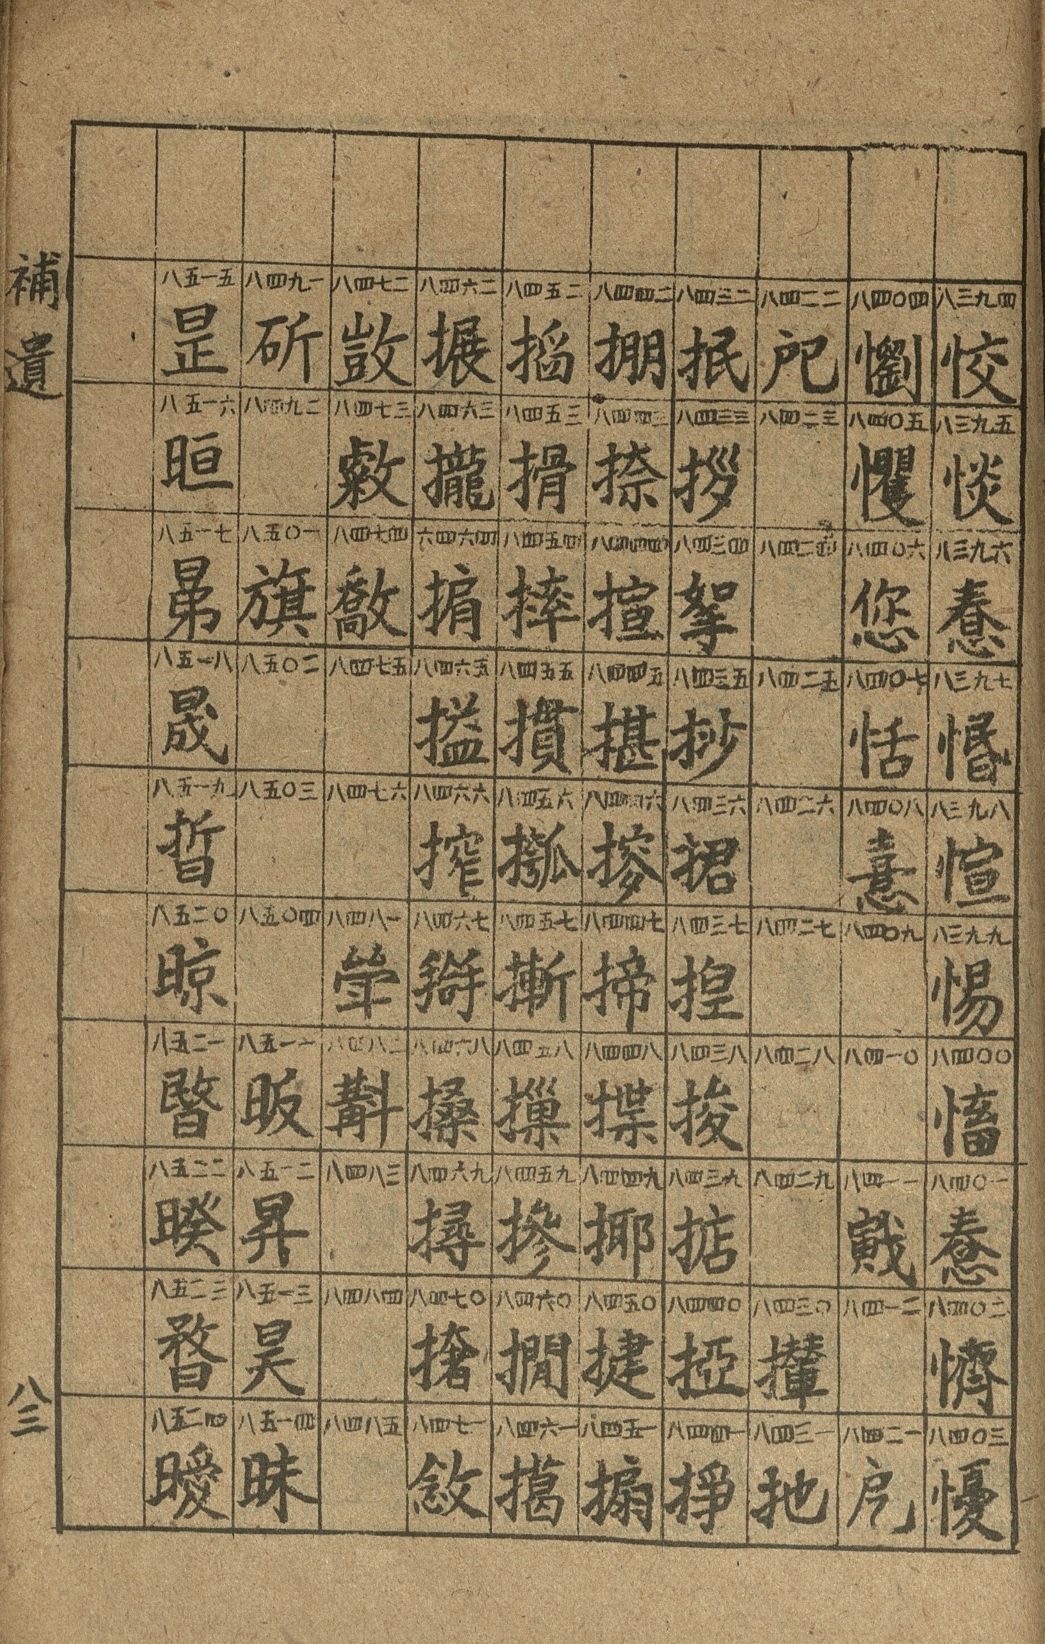 補遺
八三九四 恔
八三九五 惔
八三九六 惷
八三九七 惛
八三九八 愃
八三九九 惕
八四〇〇 慉
八四〇一 愆
八四〇二 懠
八四〇三 懮
八四〇四 懰
八四〇五 戄
八四〇六 您
八四〇七 恬
八四〇八 憙
八四〇九
八四一〇
八四一一 戭
八四一二
八四二一 戹
八四二二 戺
八四二三
八四二四
八四二五
八四二六
八四二七
八四二八
八四二九
八四三〇 攆
八四三一 扡
八四三二 抿
八四三三 拶
八四三四 挐
八四三五 抄
八四三六 捃
八四三七 揘
八四三八 捘
八四三九 掂
八四四〇 掗
八四四一 掙
八四四二 掤
八四四三 捺
八四四四 揎
八四四五 揕
八四四六 摎
八四四七 揥
八四四八 揲
八四四九 揶
八四五〇 揵
八四五一 搧
八四五二 搯
八四五三 搰
八四五四 摔
八四五五 摜
八四五六 摦
八四五七 摲
八四五八 摷
八四五九 摻
八四六〇 撊
八四六一 擖
八四六二 搌
八四六三 攏
六四六四 掮
八四六五 搤
八四六六 搾
八四六七 搿
八四六八 搡
八四六九 撏
八四七〇 搶
八四七一 敜
八四七二 敳
八四七三 敹
八四七四 敽
八四七五
八四七六
八四八一 斚
八四八二 斠
八四八三
八四八四
八四八五
八四九一 斪
八四九二
八五〇一 旗
八五〇二
八五〇三
八五〇四
八五一一 昄
八五一二 昇
八五一三 昊
八五一四 昧
八五一五 昰
八五一六 晅
八五一七 晜
八五一八 晟
八五一九 晢
八五二〇 晾
八五二一 暋
八五二二 暌
八五二三 暓
八五二四 曖
八三